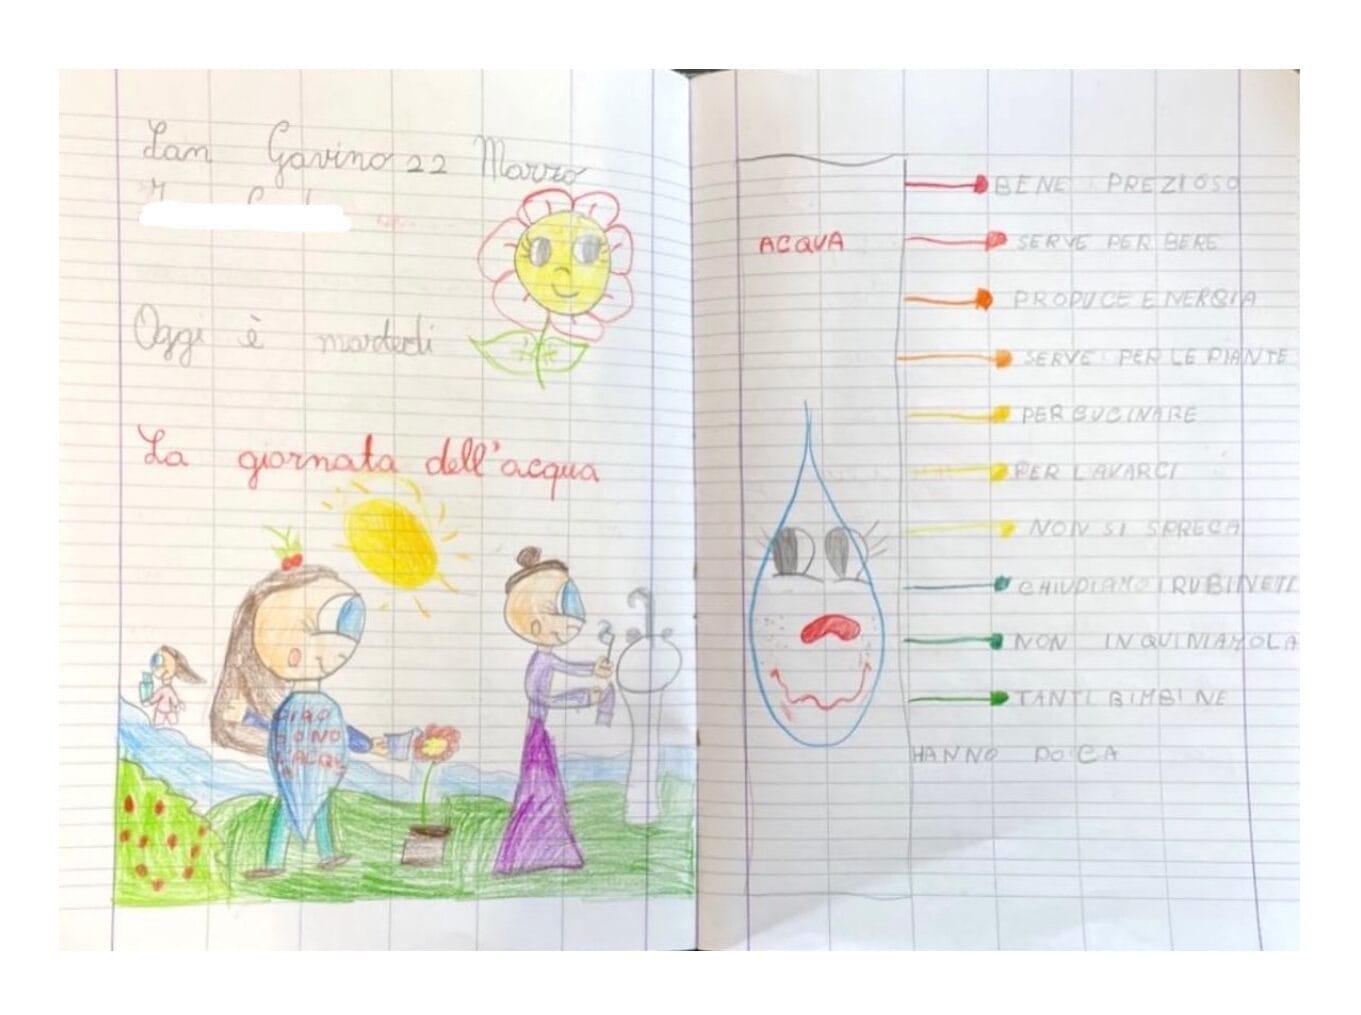 San Gavino 22 Marzo
Oggi è martedì
La giornata dell'acqua
CIAO
SONO
L'ACQU
A
ACQUA
BENE PREZIOSO
SERVE PER BERE
PRODUCE ENERGIA
SERVE PER LE PIANTE
PER CUCINARE
PER LAVARCI
NON SI SPRECA
CHIUDIAMO I RUBINETI
NON INQUINIAMOLA
TANTI BIMBI NE
HANNO POCA